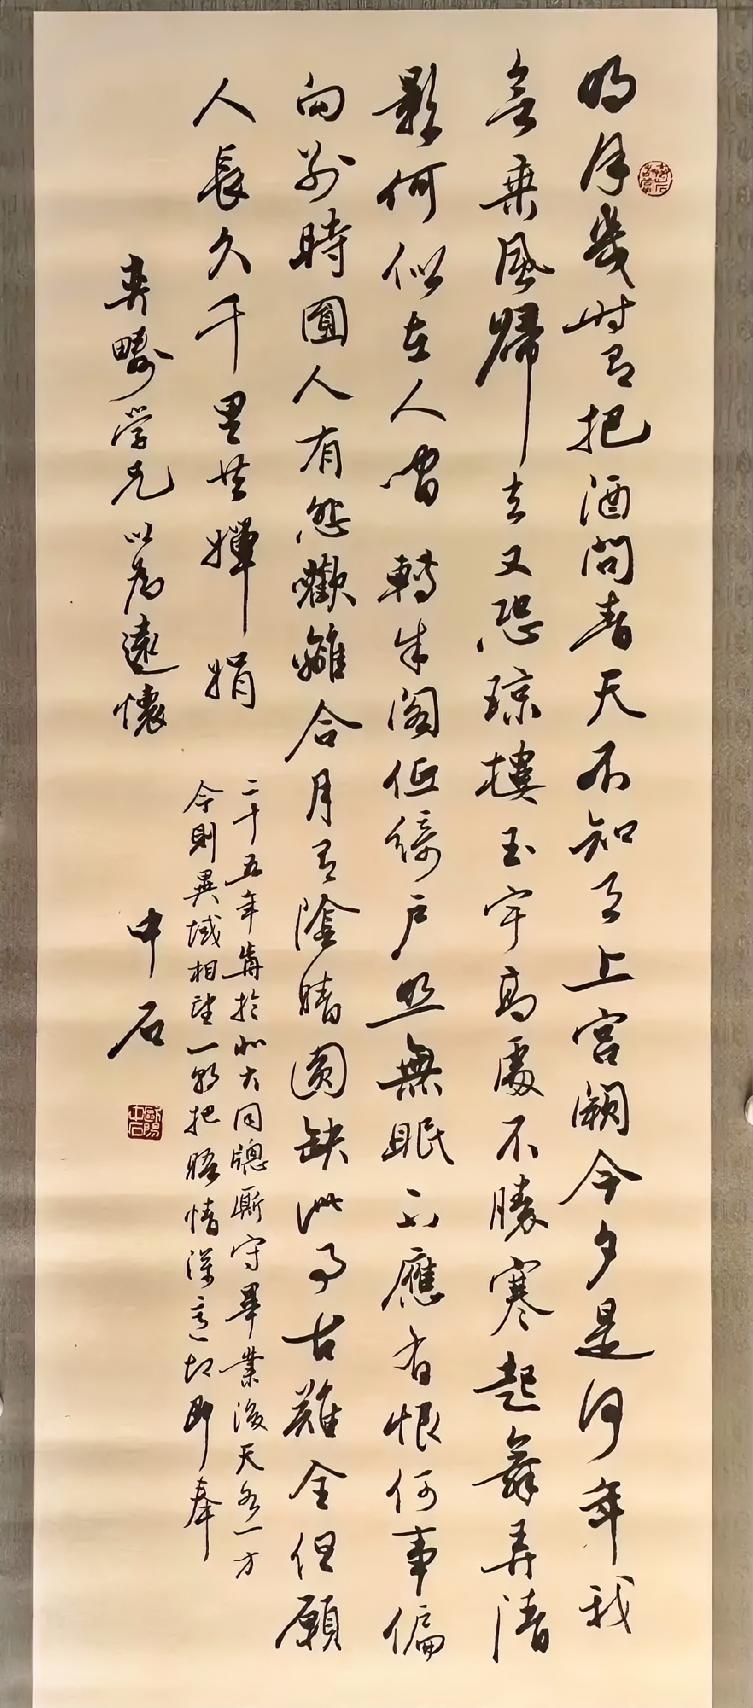 明月幾時有把酒問青天不知天上宮闕今夕是何年我
欲乘風歸去又恐琼樓玉宇高處不勝寒起舞弄清
影何似在人間轉朱閣低綺戶照無眠不應有恨何事偏
向別時圓人有悲歡離合月有陰晴圓缺此事古難全但願
人長久千里共嬋娟
二十五年前於北大同窗廝守畢業後天各一方
今則異域相望一朝把晤情深意切即奉
弈疇学兄以為遠懷
中石
歐陽中石